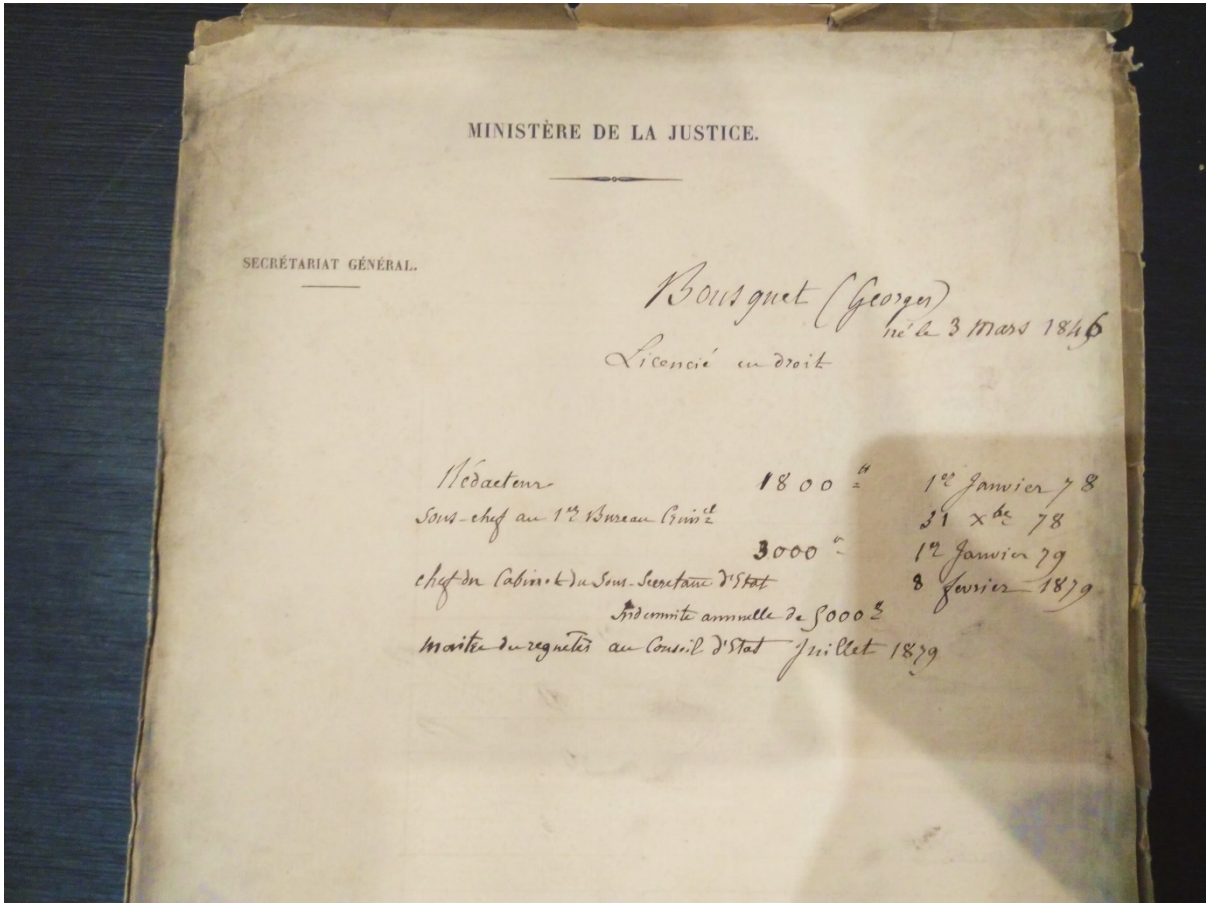 MINISTÈRE DE LA JUSTICE.
SECRÉTARIAT GÉNÉRAL.
Bousquet (Georges)
né le 3 Mars 1846
Licencié en droit
Rédacteur 1800 fr 1er Janvier 78
Sous-chef au 1er Bureau Crimel 31 Xbre 78
3000 fr 1er Janvier 79
chef du Cabinet du Sous-Secretaire d'Etat 8 fevrier 1879
Indemnité annuelle de 5000 fr
maitre des requêtes au Conseil d'Etat Juillet 1879